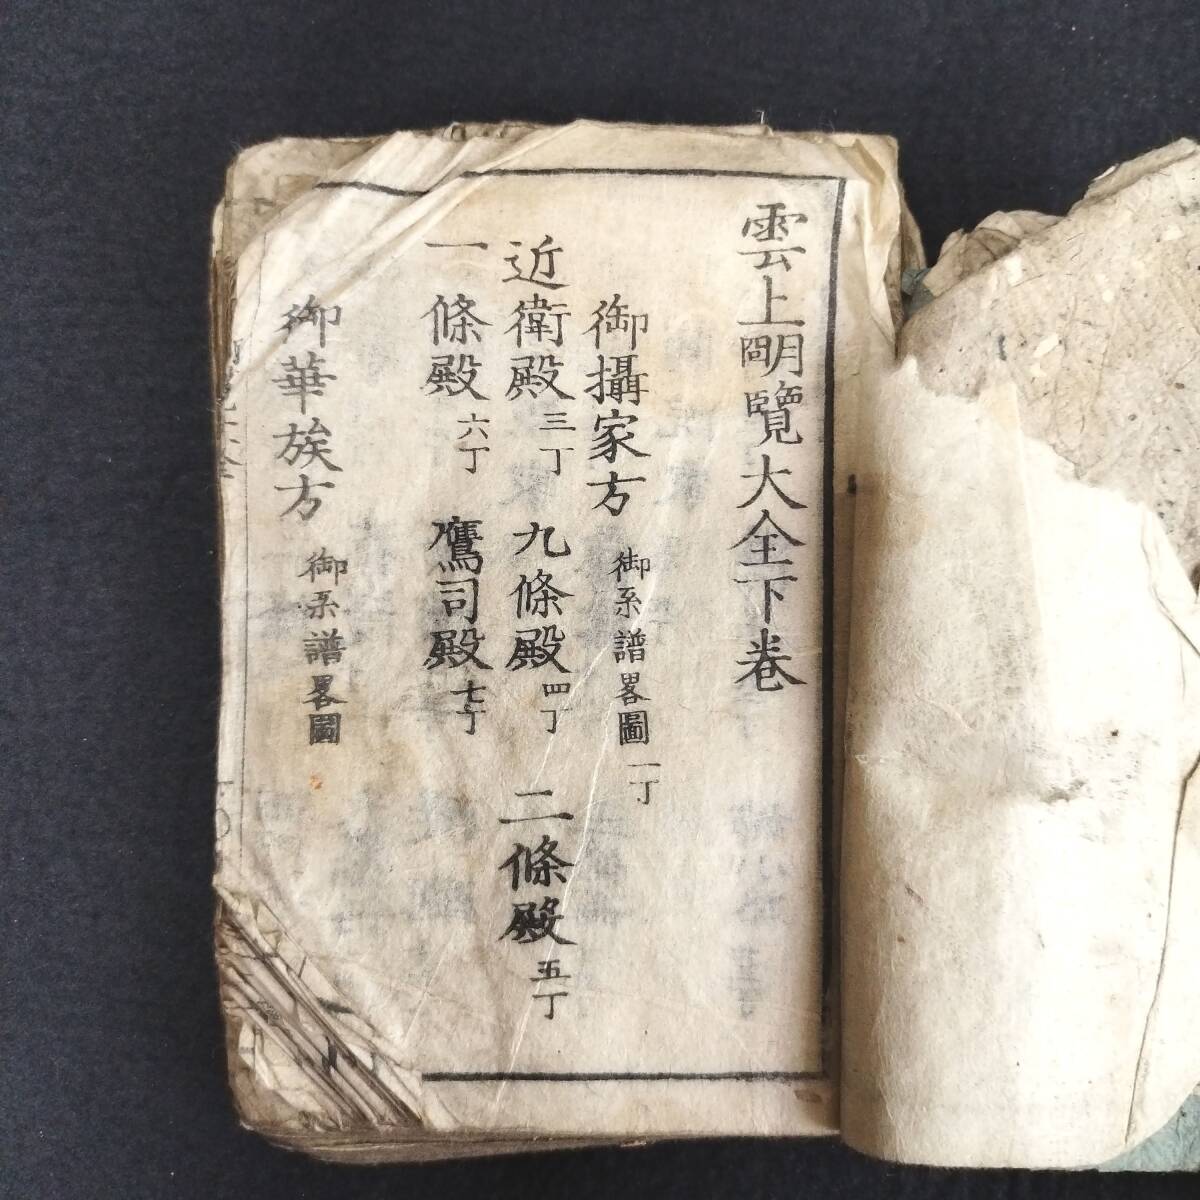 雲上明覽大全下巻
御攝家方 御系譜畧圖 一丁
近衛殿 三丁 九條殿 四丁 二條殿 五丁
一條殿 六丁 鷹司殿 七丁
御華族方 御系譜畧圖